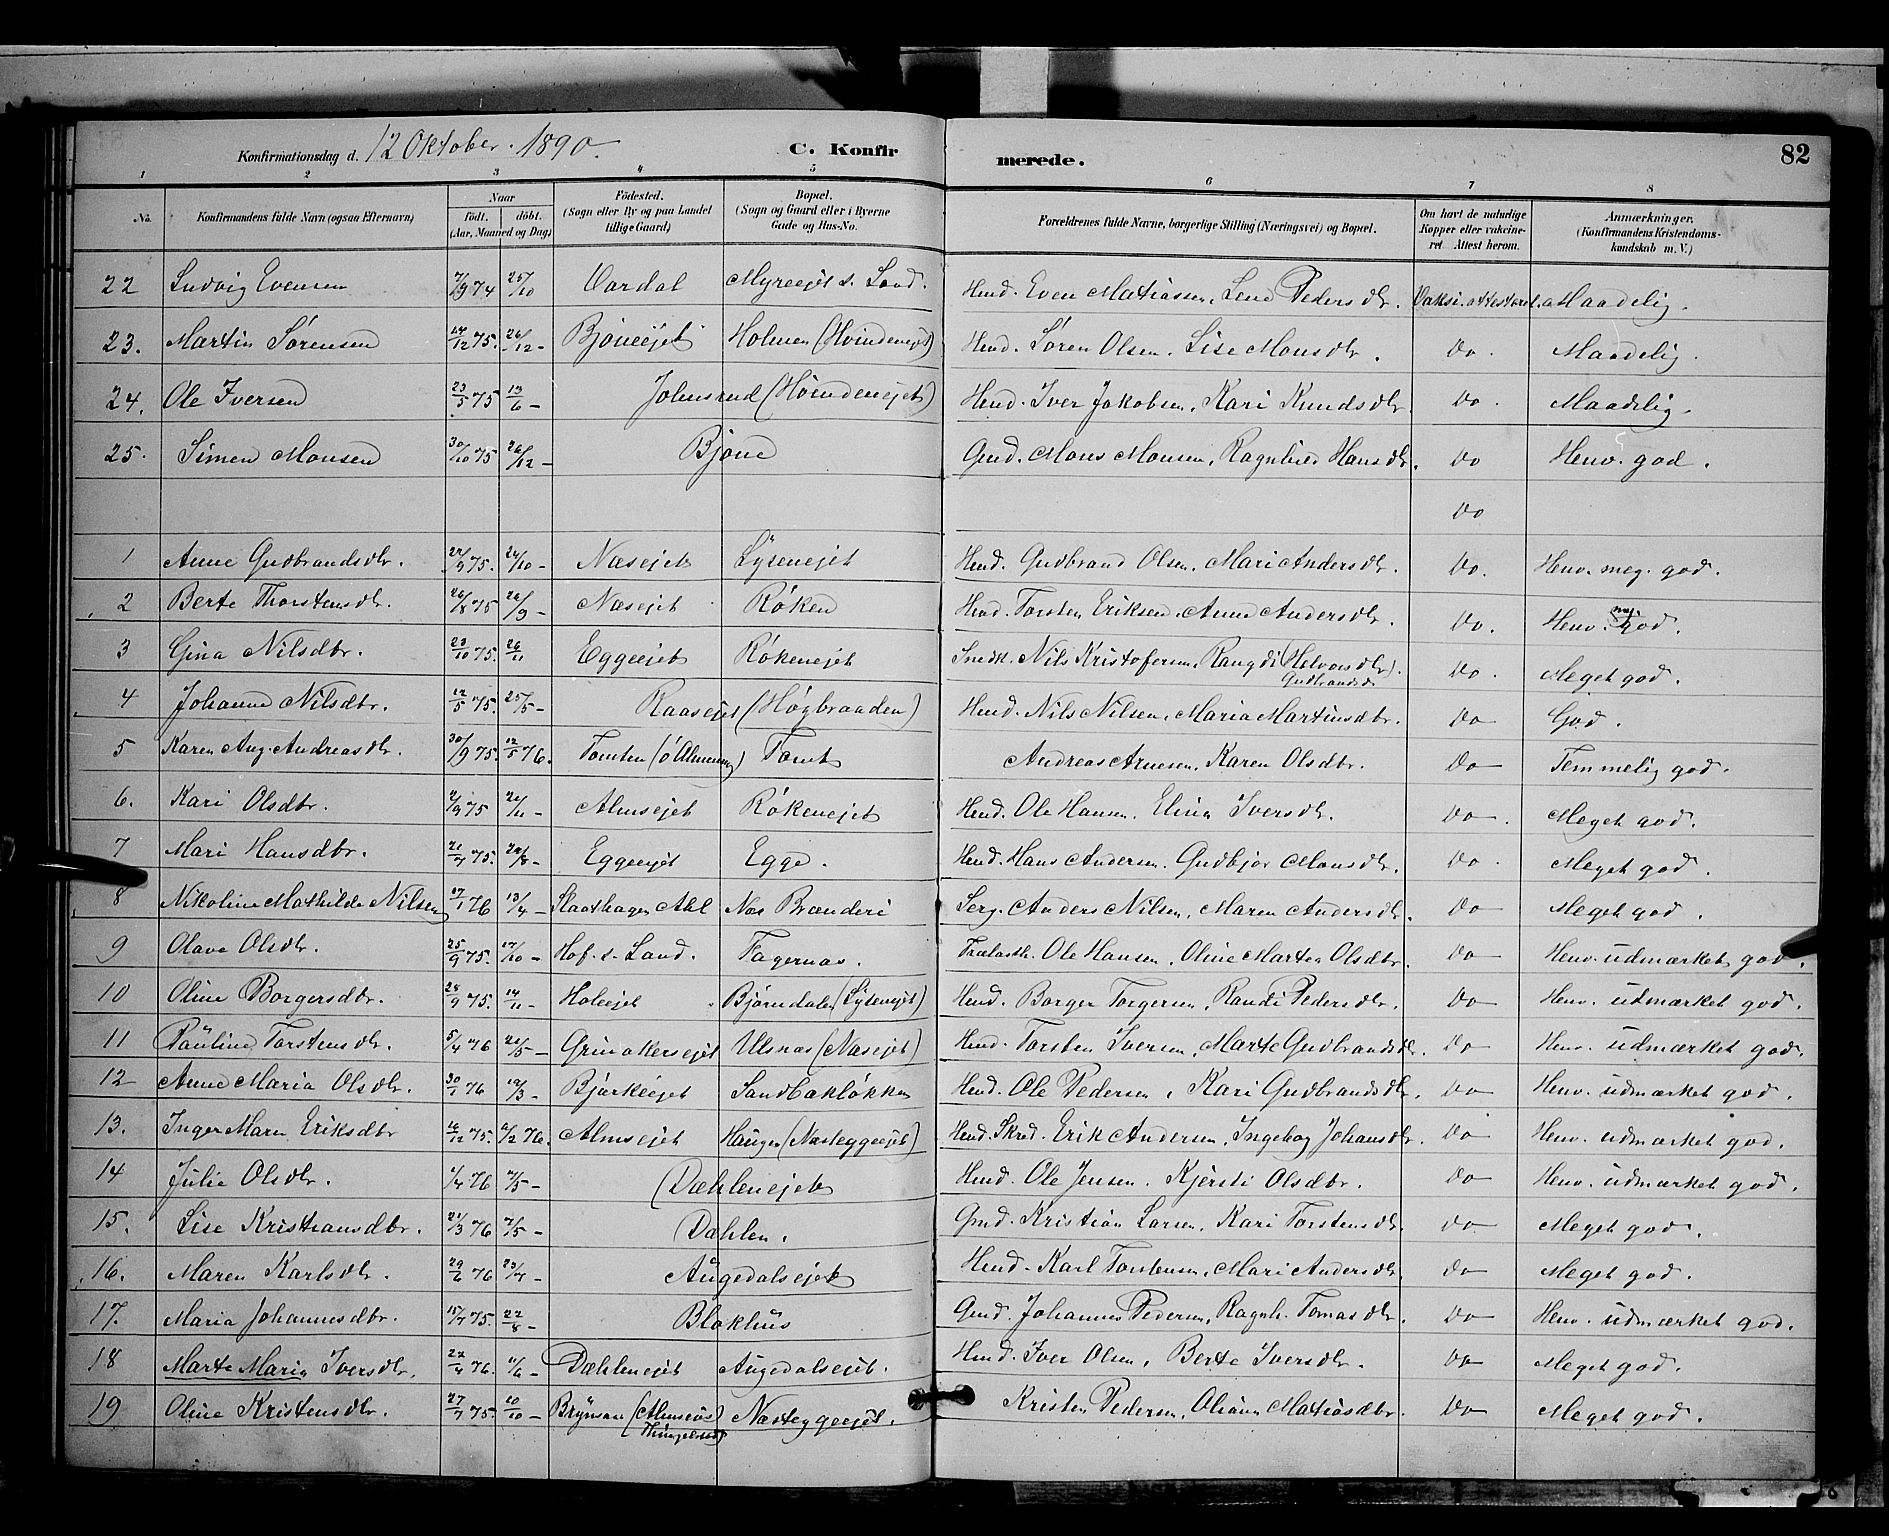 Konfirmationsdag d. 12 Oktober. 1890. C. Konfir merede. 82
1 2 3 4 5 6 7 8
No. Konfirmandens fulde Navn (ogsaa Efternavn) Naar født. døbt. (Aar, Maaned og Dag) Fødested. (Sogn eller By og paa Landet tillige Gaard) Bopæl. (Sogn og Gaard eller i Byerne Gade og Hus-No. Forældrenes fulde Navne, borgerlige Stilling (Næringsvei) og Bopæl. Om havt de naturlige Kopper eller vakcineret. Attest herom. Anmærkninger, (Konfirmandens Kristendomskundskab m. V.)
22 Ludvig Evensen 7/9 74 25/10 Vardal Myreejet s. Land. Hmd. Even Matiassen, Lene Pedersdtr. Vaksi. attesteret. Maadelig.
23. Martin Sørensen 12 75. 26/12 - Bjoneejet Holmen (Hvindenejet) Hmd. Søren Olsen. Lise Monsdtr. Do. Maadelig.
24. Ole Iversen 23/5 75 13/6 - Johnsrud (Høindenejet) Hmd. Iver Jakobsen, Kari Knudsdtr. Do. Maadelig.
25. Simen Monsen 30/10 75 26/12 - Bjone Gmd. Mons Monsen, Ragnhild Hansdtr. Do Henv. god.
Do
1 Anne Gudbrandsdtr. 22/9 75. 24/10 - Næsejet Lysenejet Hmd. Gudbrand Olsen, Mari Andersdtr. Do. Henv. meg. god.
2 Berte Thorstensdtr. 26/8 75 26/9 - Næsejet Røken Hmd. Torsten Eriksen. Anne Andersdtr. Do. Henv. meg god.
3 Gina Nilsdtr. 23/10 75. 26/11 Eggeejet Røkenejet Snedk. Nils Kristofersen, Rangdi (Halvorsdtr.) Gudbrandsd. Do. Meget god.
4 Johanne Nilsdtr. 12/5 75. 25/5 - Raasejet (Høgbraaden) Hmd. Nils Nilsen, Maria Martinsdtr. Do God.
5 Karen Aug. Andreasdtr. 30/9 75. 12/5 76. Tomten (ø Almenning) Tomt Andreas Arnesen. Karen Olsdtr. Do Temmelig god.
6. Kari Olsdtr. 9 75 21/11 Almsejet Røkenejet Hmd. Ole Hansen. Elina Iversdtr. Do. Meget god.
7 Mari Hansdtr. 21/7 75. 22/8 - Eggeejet Egge. Hmd. Hans Andersen. Gudbjør Monsdtr. Do. Meget god.
8 Nikoline Mathilde Nilsen 17/1 76 13/4 - Slaathagen Ahl Næs Brænderi Serg. Anders Nilsen, Maren Andersdtr. Do Meget god.
9 Olava Olsdtr. 25/9 75. 17/10 - Hof. s. Land. Fagernæs. Trælasth. Ole Hansen, Oline Martea Olsdtr. Do Henv. udmærket god.
10 Oline Borgersdtr. 28/9 75. 14/11 - Holeejet Bjørndalen (Lysenejet) Hmd. Borger Torgersen, Randi Pedersdtr. Do Henv. udmærket god.
11 Pauline Torstensdtr. 5/4 76 21/5 - Grinakersejet Ulsnæs (Næsejet) Hmd. Torsten Iversen, Marte Gudbrandsdtr. Do Henv. udmærket god.
12 Anne Maria Olsdtr. 30/1 76 19/3 - Bjørkeejet Sandbakløkken Hmd. Ole Pedersen, Kari Gudbrandsdtr. Do Henv. udmærket god.
13. Inger Marie Eriksdtr 16/12 75. 2 76. Almsejet Haugen (Næsteggeejet) Hmd. Skred. Erik Andersen, Ingebog Johansdtr. Do Henv. udmærket god.
14 Julie Olsdtr. 1/4 76 7/5 - (Dæhlenejet) Hmd. Ole Jensen. Kjersti Olsdtr. Do Henv. udmærket god.
15. Lise Kristiansdtr. 21/3 76 7/5 - Dæhlen. Gmd. Kristian Larsen, Kari Torstensdtr. Do Meget god.
16. Maren Karlsdtr. 29/6 76 23/7 - Augedalsejet Hmd. Karl Torstensen, Mari Andersdtr. Do Meget god.
17. Maria Johannesdtr. 15/7 75. 22/8 - Blokhus Gmd. Johannes Pedersen, Ragnh. Tomasdtr. Do Henv. udmærket god.
18 Marte Maria Iversdtr. 22/4 76. 11/6 - Dæhlenejet Augedalsejet. Hmd. Iver Olsen, Berte Iversdtr. Do Meget god.
19 Oline Kristensdtr. 27/7 75. 10/10 - Næsteggeejet. Kristen Pedersen, Oliane Matiasdtr. Do Meget god.